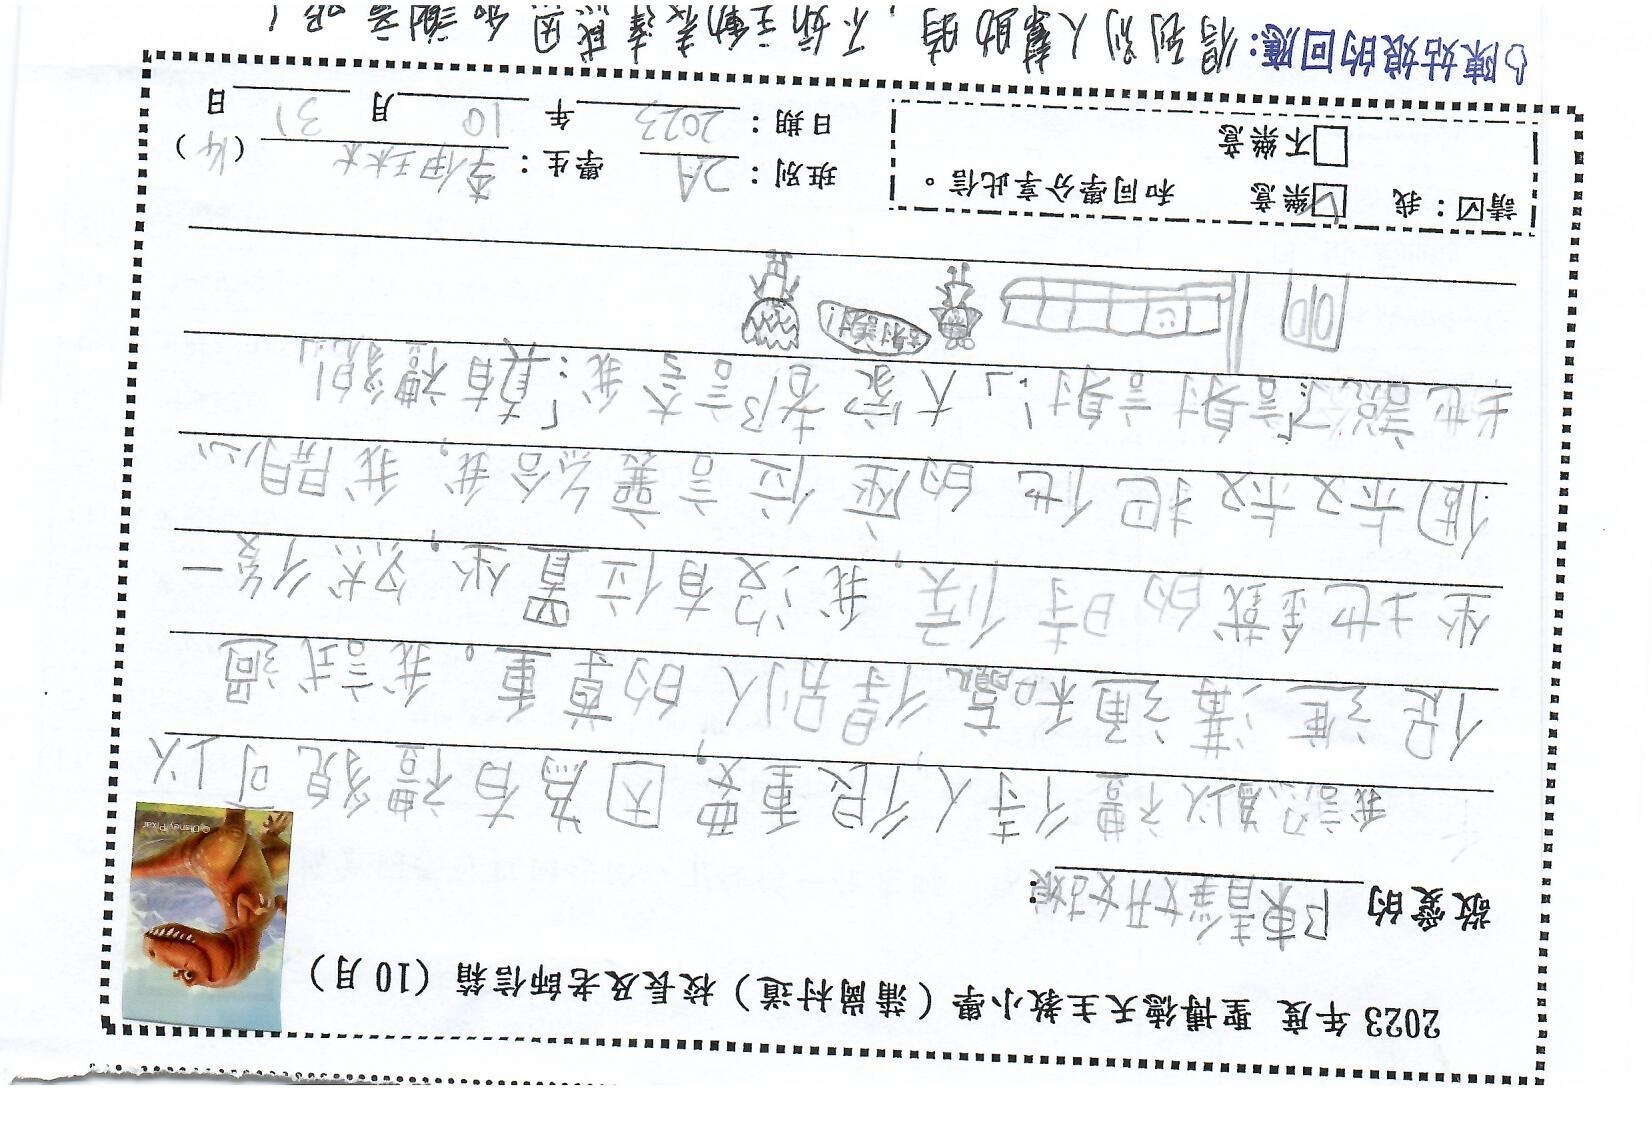 2023年度 聖博德天主教小學（蒲崗村道）校長及老師信箱（10月）
©Disney/Pixar
敬愛的 陳倩妍姑娘：
我認為以禮待人很重要，因為有禮貌可以
促進溝通和贏得別人的尊重。我試過
坐地鐵的時候，我沒有位置坐，然後一
個叔叔把他的座位讓給我，我開心
地說：「謝謝！」大家都讚我：「真有禮貌！」
謝謝！
請☑：我 ☑樂意 和同學分享此信。
□不樂意
班別：2A 學生：李伊琳（14）
日期：2023年10月31日
陳姑娘的回應：得到別人幫助時，不妨主動表達感恩和謝意吧！